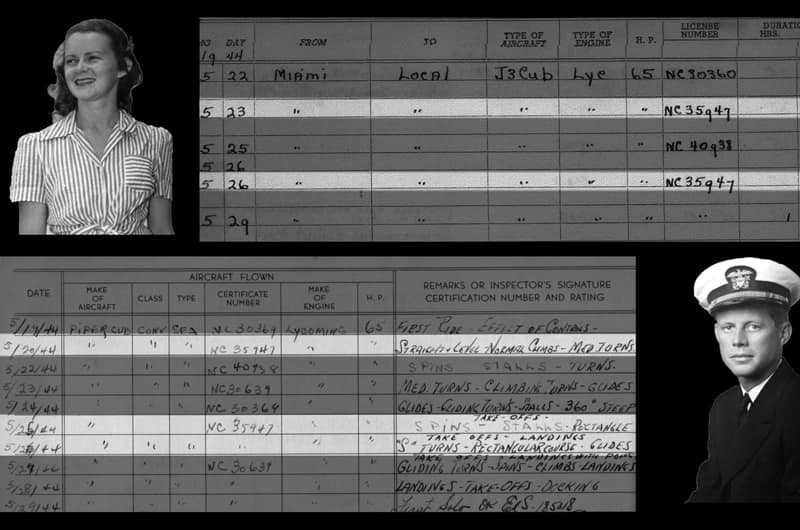 MO DAY FROM TO TYPE OF AIRCRAFT TYPE OF ENGINE H. P. LICENSE NUMBER DURATIO HRS.
19 44
5 22 MIAMI LOCAL J3CUB LYC 65 NC30360
5 23 " " " " " NC35947
5 25 " " " " " NC 40938
5 26
5 26 " " " " " NC35947
5 29 " " " " " " 1
AIRCRAFT FLOWN
DATE MAKE OF AIRCRAFT CLASS TYPE CERTIFICATE NUMBER MAKE OF ENGINE H. P. REMARKS OR INSPECTOR'S SIGNATURE CERTIFICATION NUMBER AND RATING
5/19/44 PIPERCUB CONV SEA NC30369 LYCOMING 65 FIRST RIDE - EFFECT OF CONTROLS -
5/20/44 " " " NC 35947 " " STRAIGHT & LEVEL NORMAL CLIMBS - MED TURNS
5/22/44 " " " NC 40938 " " SPINS STALLS - TURNS.
5/23/44 " " " NC30639 " " MED. TURNS - CLIMBING TURNS - GLIDES
5/24/44 " " " NC 30369 " " GLIDES - GLIDING TURNS - STALLS - 360° STEEP
TAKE-OFFS -
5/25/44 " " " NC 35947 " " SPINS - STALLS - RECTANGLE
TAKE OFFS - LANDINGS
5/26/44 " " " " " " "S" TURNS - RECTANGULAR COURSE - GLIDES
TAKE OFFS - LANDINGS WITH
" " " NC 30639 " " GLIDING TURNS - SPINS - CLIMBS LANDINGS
5/28/44 " " " " " " LANDINGS - TAKE-OFFS - DOCKING
5/29/44 " " " " " " First Solo OK